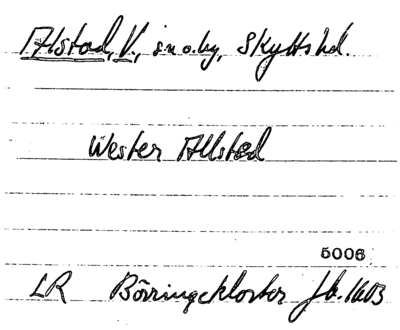 Alstad, V., sn o. by, Skytts hd.
Wester Allsted
5006
LR Börringekloster Jb. 1603